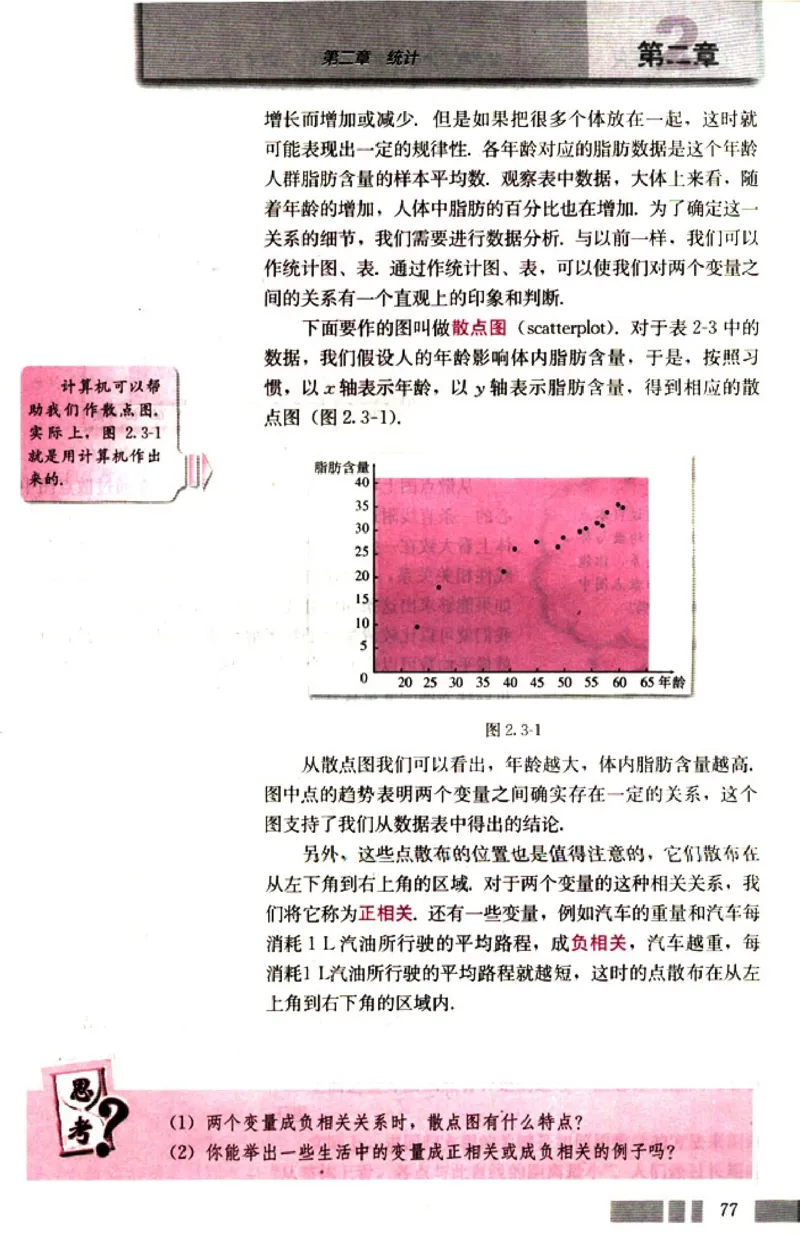 第二章 统计
第二章
增长而增加或减少. 但是如果把很多个体放在一起，这时就
可能表现出一定的规律性. 各年龄对应的脂肪数据是这个年龄
人群脂肪含量的样本平均数. 观察表中数据，大体上来看，随
着年龄的增加，人体中脂肪的百分比也在增加. 为了确定这一
关系的细节，我们需要进行数据分析. 与以前一样，我们可以
作统计图、表. 通过作统计图、表，可以使我们对两个变量之
间的关系有一个直观上的印象和判断.
下面要作的图叫做散点图（scatterplot）. 对于表 2-3 中的
数据，我们假设人的年龄影响体内脂肪含量，于是，按照习
惯，以 x 轴表示年龄，以 y 轴表示脂肪含量，得到相应的散
点图（图 2.3-1）.
计算机可以帮
助我们作散点图.
实际上，图 2.3-1
就是用计算机作出
来的.
脂肪含量
40
35
30
25
20
15
10
5
0
20 25 30 35 40 45 50 55 60 65 年龄
图 2.3-1
从散点图我们可以看出，年龄越大，体内脂肪含量越高.
图中点的趋势表明两个变量之间确实存在一定的关系，这个
图支持了我们从数据表中得出的结论.
另外，这些点散布的位置也是值得注意的，它们散布在
从左下角到右上角的区域. 对于两个变量的这种相关关系，我
们将它称为正相关. 还有一些变量，例如汽车的重量和汽车每
消耗 1 L 汽油所行驶的平均路程，成负相关，汽车越重，每
消耗1 L汽油所行驶的平均路程就越短，这时的点散布在从左
上角到右下角的区域内.
思考？
（1）两个变量成负相关关系时，散点图有什么特点？
（2）你能举出一些生活中的变量成正相关或成负相关的例子吗？
77